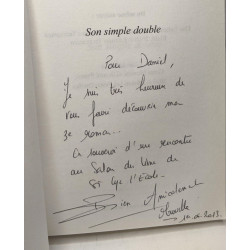 Son simple double
Pour Daniel,
Je suis très heureux de
vous faire découvrir mon
3e roman...
En souvenir d'une rencontre
au Salon du Livre de
St Cyr l'Ecole.
Bien Amicalement
2013.